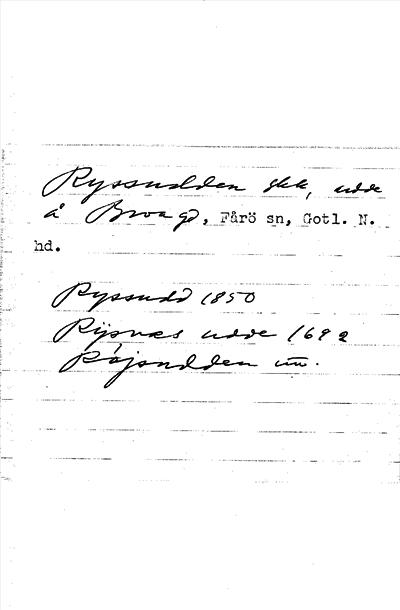 Ryssudden ekk, udde
å Broa gd, Fårö sn, Gotl. N.
hd.
Ryssudd 1850
Rijsnæs udde 1692
Röjsudden